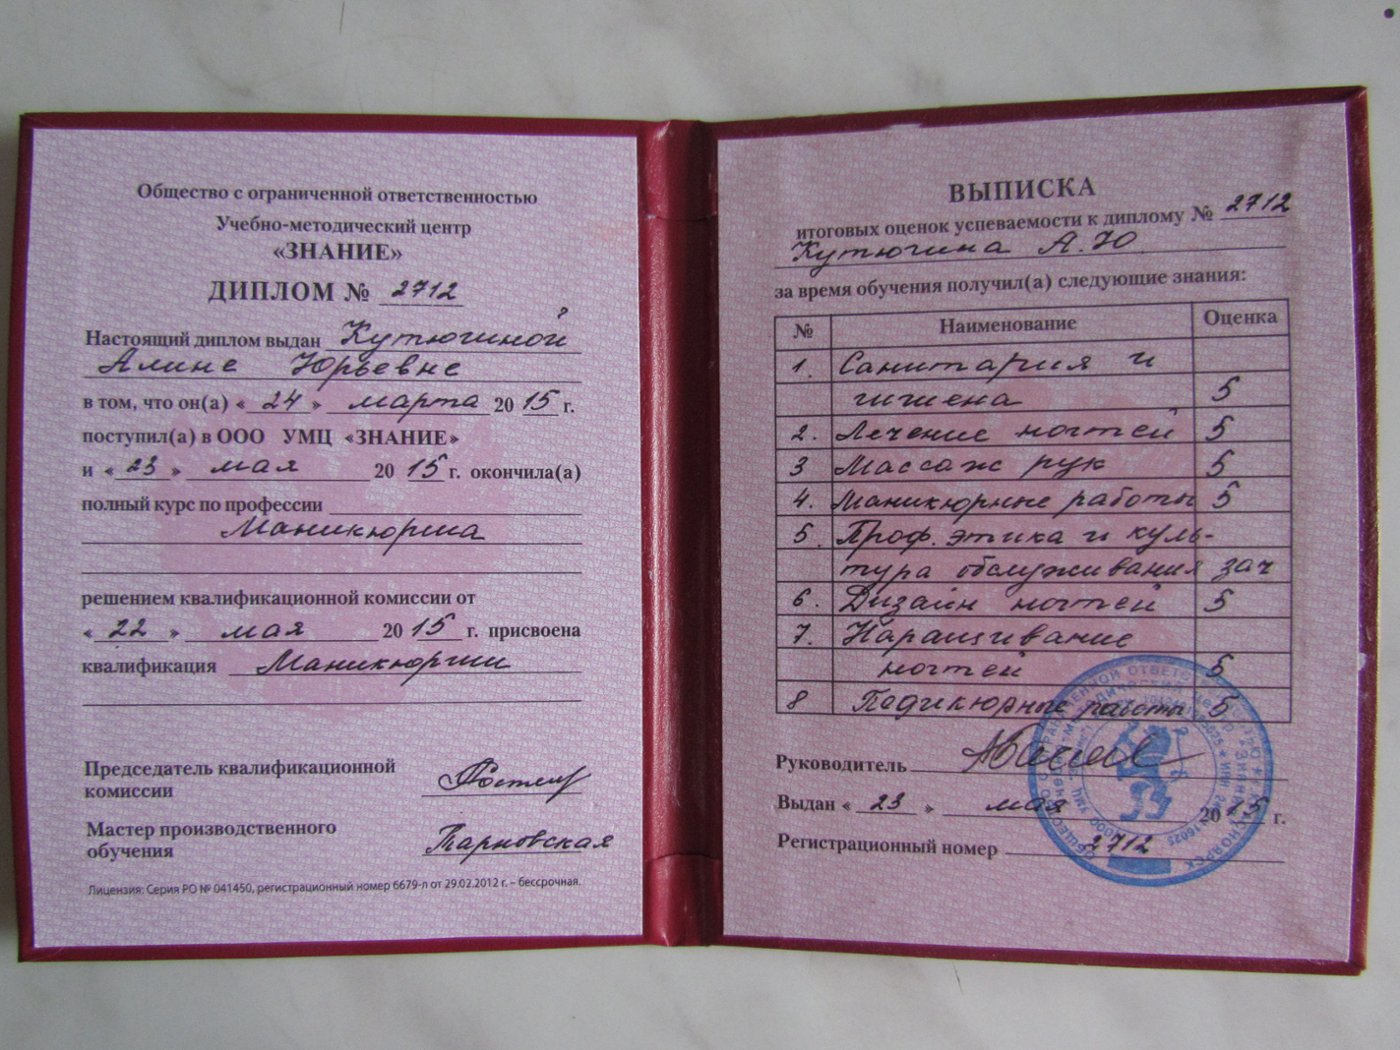 Общество с ограниченной ответственностью
Учебно-методический центр
«ЗНАНИЕ»
ДИПЛОМ № 2712
Настоящий диплом выдан Кутюгиной
Алине Юрьевне
в том, что он(а) « 24 » марта 20 15 г.
поступил(а) в ООО УМЦ «ЗНАНИЕ»
и « 23 » мая 20 15 г. окончила(а)
полный курс по профессии
Маникюрша
решением квалификационной комиссии от
« 22 » мая 20 15 г. присвоена
квалификация Маникюрши
Председатель квалификационной
комиссии
Мастер производственного
обучения Тарновская
Лицензия: Серия РО № 041450, регистрационный номер 6679-л от 29.02.2012 г. – бессрочная.
ВЫПИСКА
итоговых оценок успеваемости к диплому № 2712
Кутюгина А.Ю
за время обучения получил(а) следующие знания:
№ Наименование Оценка
1. Санитария и
гигиена 5
2. Лечение ногтей 5
3 Массаж рук 5
4. Маникюрные работы 5
5. Проф. этика и куль-
тура обслуживания зач
6. Дизайн ногтей 5
7. Наращивание
ногтей 5
8 Педикюрные работы 5
Руководитель
Выдан « 23 » мая 20 15 г.
Регистрационный номер 2712